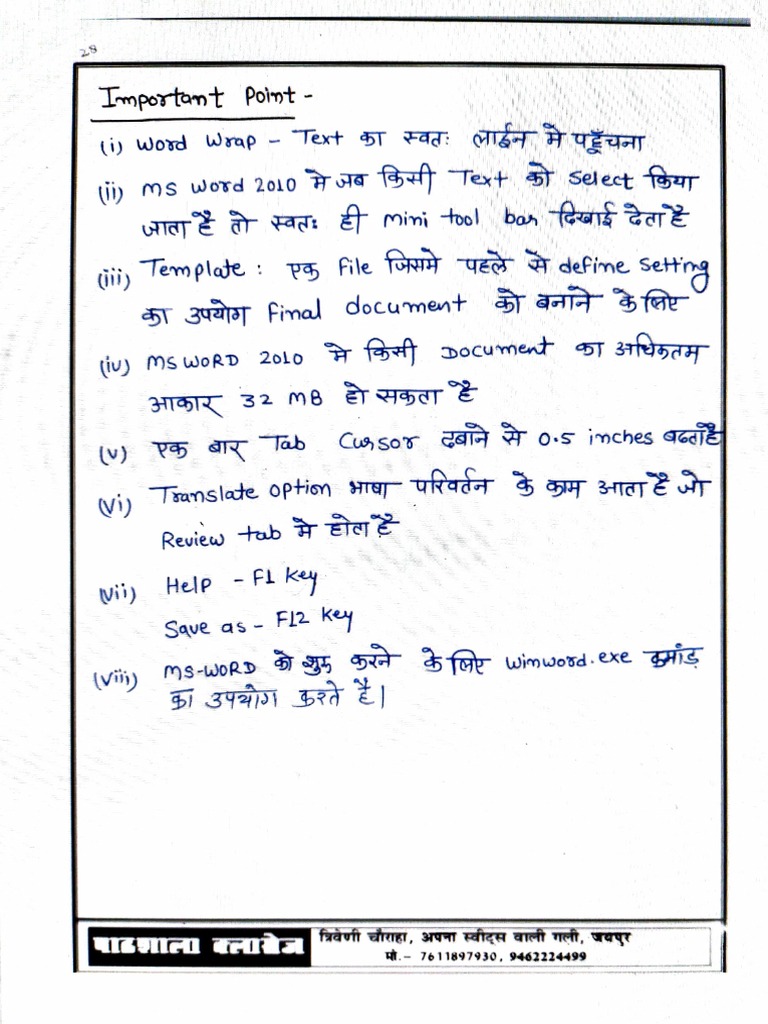 28
Important Point -
(i) Word Wrap - Text का स्वतः लाईन मे पहूँचना
(ii) MS Word 2010 मे जब किसी Text को select किया
जाता है तो स्वतः ही mini tool bar दिखाई देता है
(iii) Template : एक File जिसमे पहले से define setting
का उपयोग Final document को बनाने के लिए
(iv) MS WORD 2010 मे किसी Document का अधिकतम
आकार 32 MB हो सकता है
(v) एक बार Tab Cursor दबाने से 0.5 inches बढता है
(vi) Translate option भाषा परिवर्तन के काम आता है जो
Review tab मे होता है
(vii) Help - F1 Key
Save as - F12 Key
(viii) MS-WORD को शुरू करने के लिए winword.exe कमांड
का उपयोग करते है।
पाठशाला क्लासेज
त्रिवेणी चौराहा, अपना स्वीट्स वाली गली, जयपुर
मो.- 7611897930, 9462224499